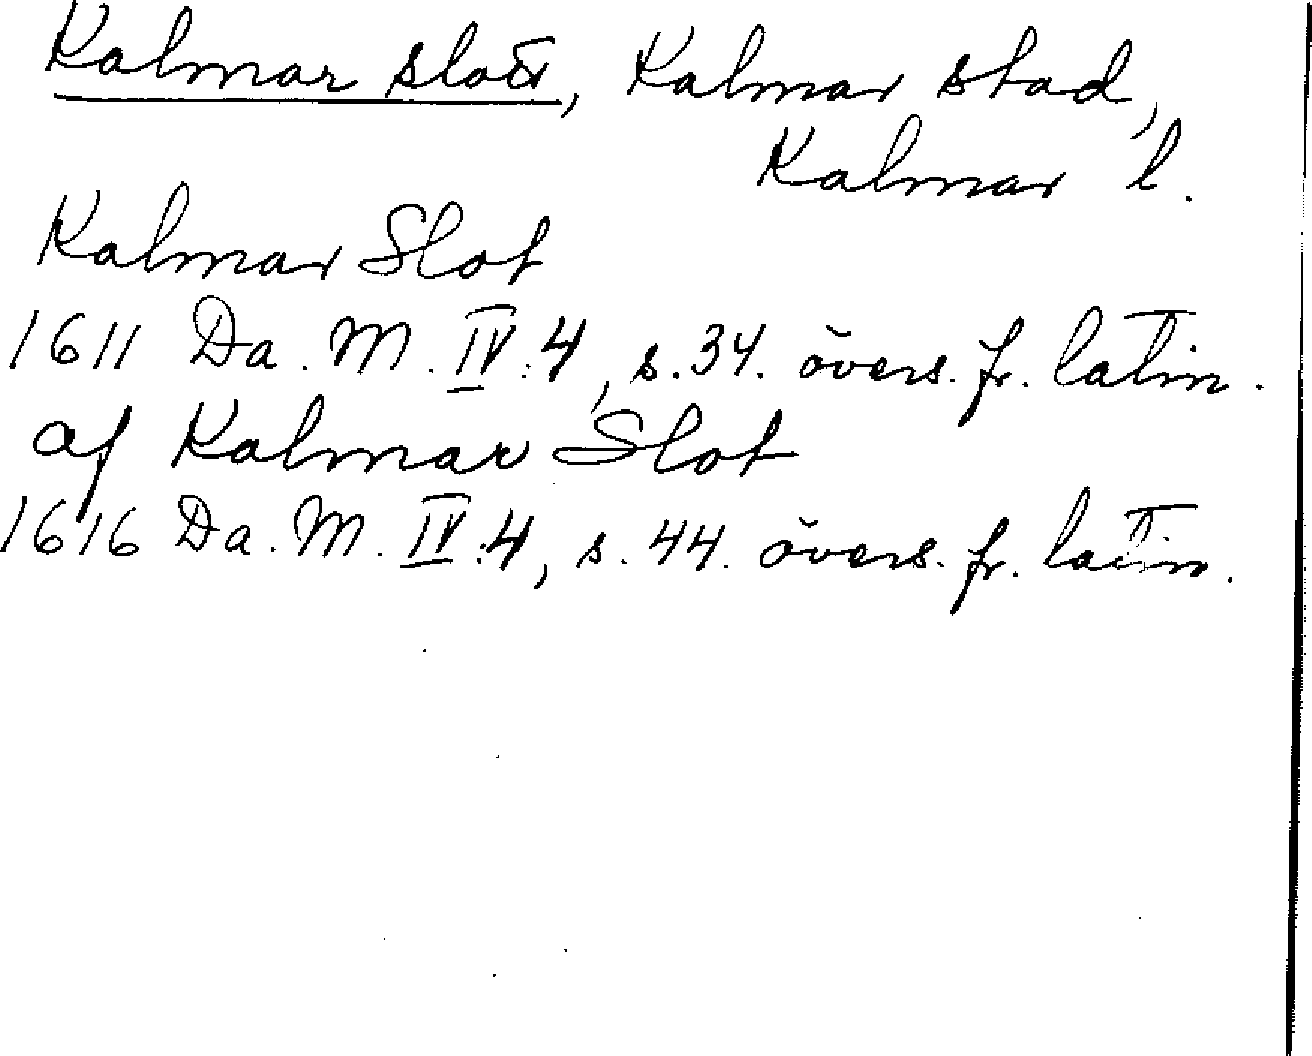 Kalmar slott, Kalmar stad,
Kalmar l.
Kalmar Slot
1611 Da. M. IV:4, s. 34. övers. fr. latin.
af Kalmar Slot
1616 Da. M. IV:4, s. 44. övers. fr. latin.